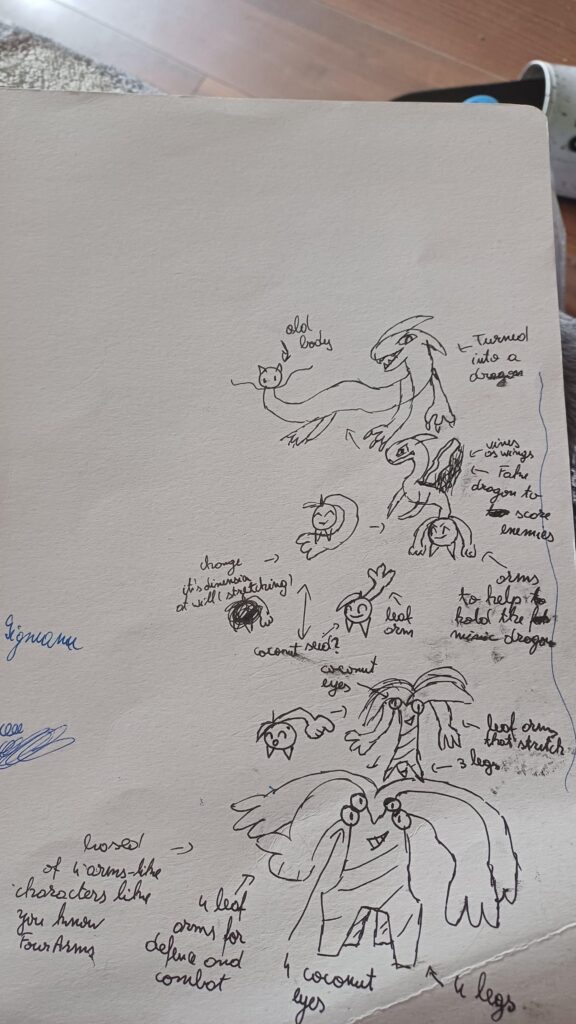 old
body
← Turned
into a
dragon
← vines
as wings
← Fake
dragon to
score
enemies
change
it's dimension
at will (stretching)
arms
to help to
hold the
mimic dragon
leaf
arm
coconut seed?
coconut
eyes
leaf arms
that stretch
← 3 legs
based →
of 4 arms-like
characters like
you know
FourArms
4 leaf
arms for
defence and
combat
4 coconut
eyes
4 legs